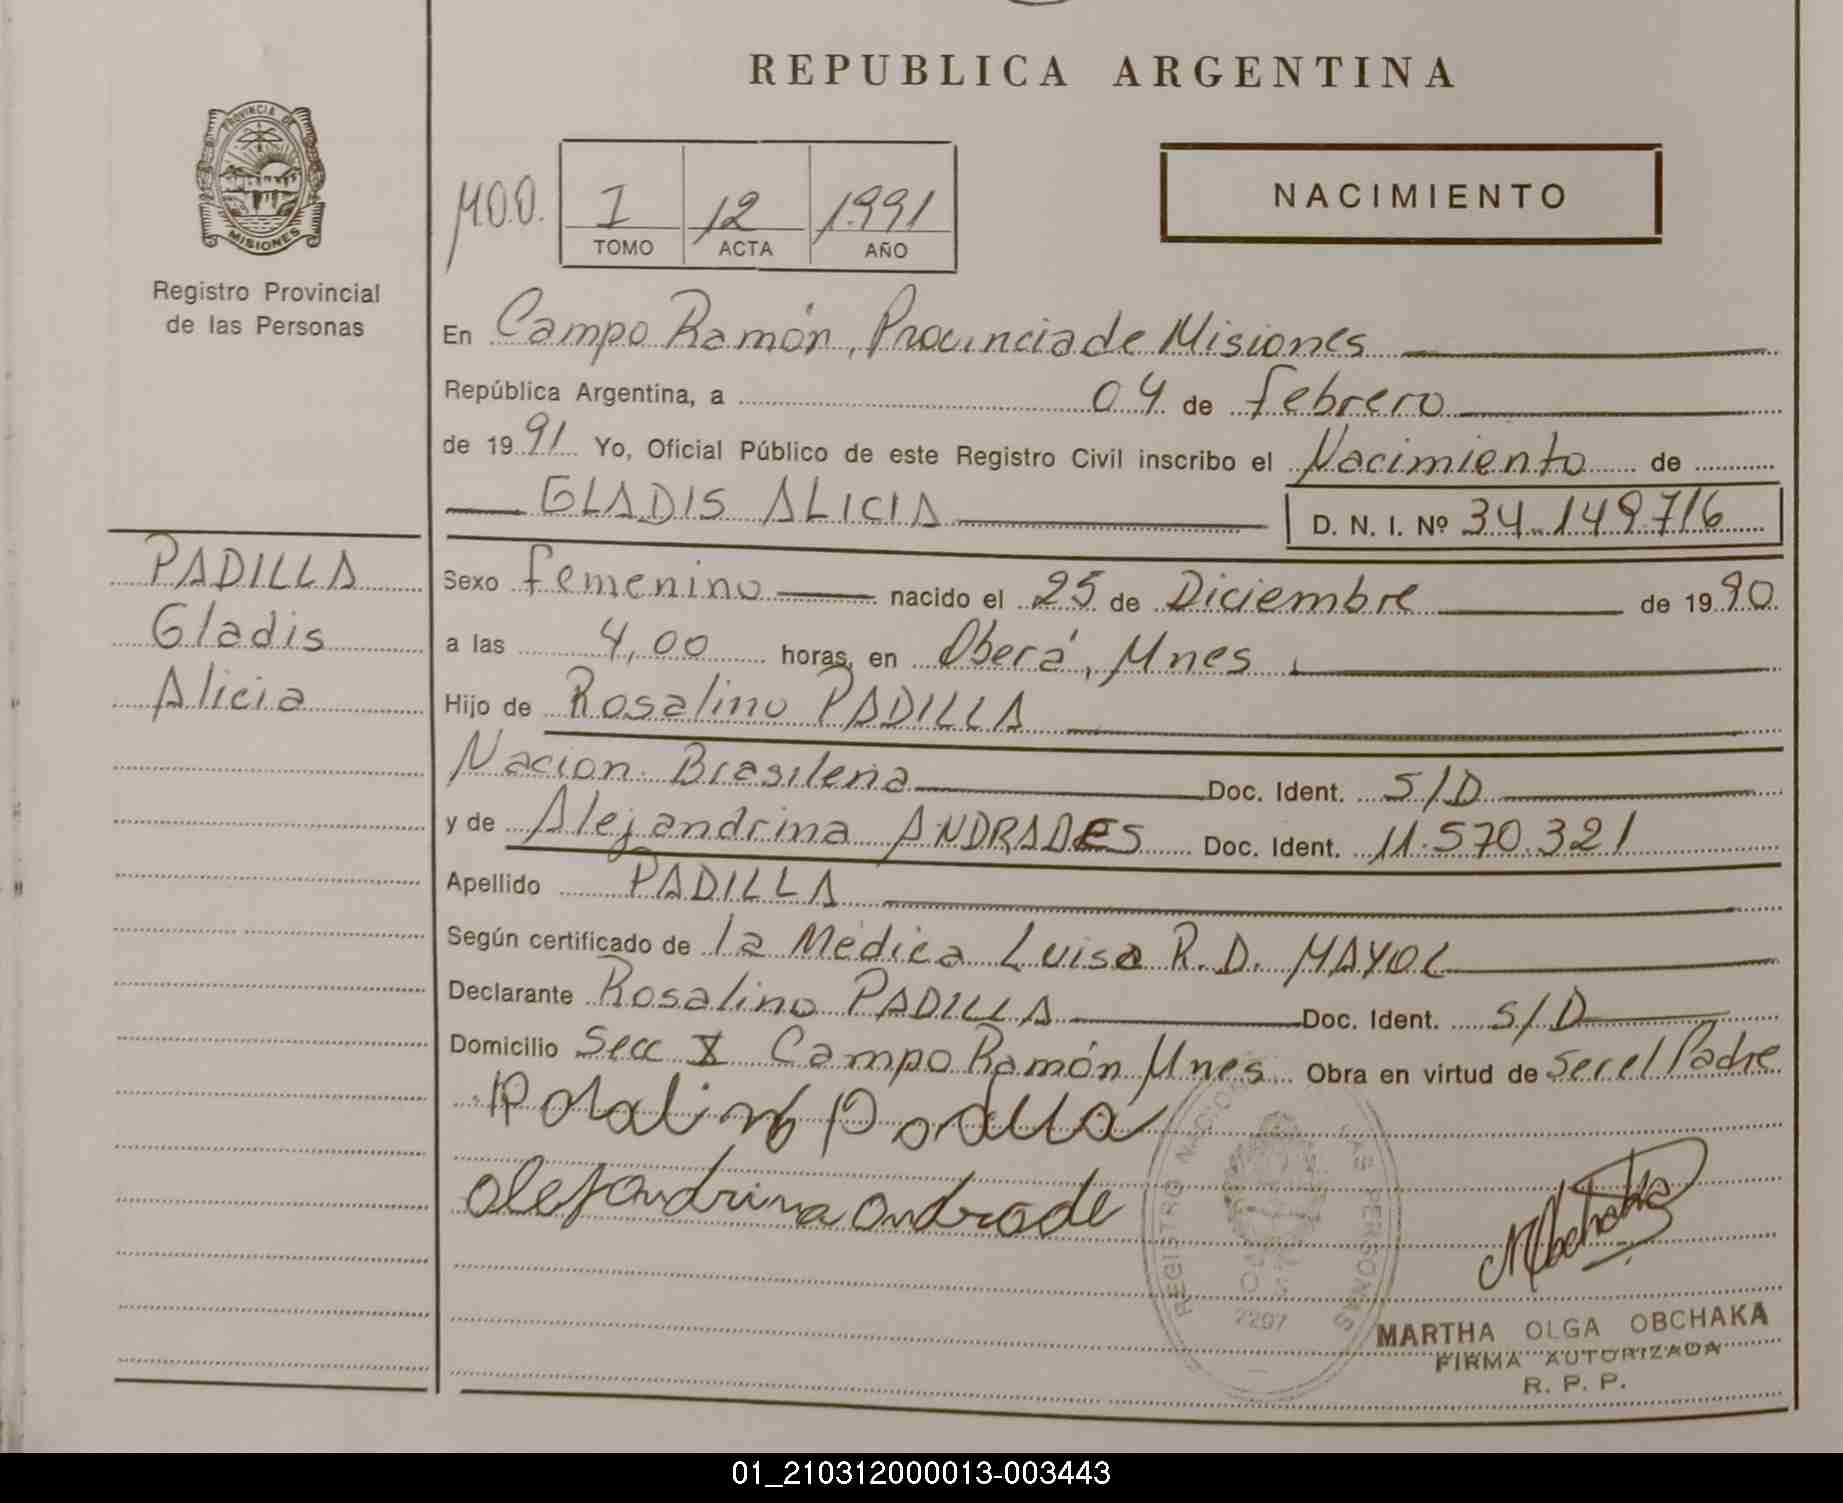 REPUBLICA ARGENTINA
PROVINCIA DE
MISIONES
Registro Provincial
de las Personas
M.O.O.
I 12 1991
TOMO ACTA AÑO
NACIMIENTO
En Campo Ramón, Provincia de Misiones
República Argentina, a 04 de febrero
de 1991 Yo, Oficial Público de este Registro Civil inscribo el Nacimiento de
GLADIS ALICIA D. N. I. Nº 34.149.716
PADILLA
Gladis
Alicia
Sexo femenino nacido el 25 de Diciembre de 1990
a las 4,00 horas, en Oberá, Mnes
Hijo de Rosalino PADILLA
Nacion. Brasileña Doc. Ident. S/D
y de Alejandrina ANDRADES Doc. Ident. 11.570.321
Apellido PADILLA
Según certificado de la Médica Luisa R. D. MAYOL
Declarante Rosalino PADILLA Doc. Ident. S/D
Domicilio Secc X Campo Ramón Mnes Obra en virtud de ser el Padre
Rosalino Padilla
alejandrina andrade
REGISTRO NACIONAL PERSONAS
2207
MObchaka
MARTHA OLGA OBCHAKA
FIRMA AUTORIZADA
R. P. P.
01_210312000013-003443